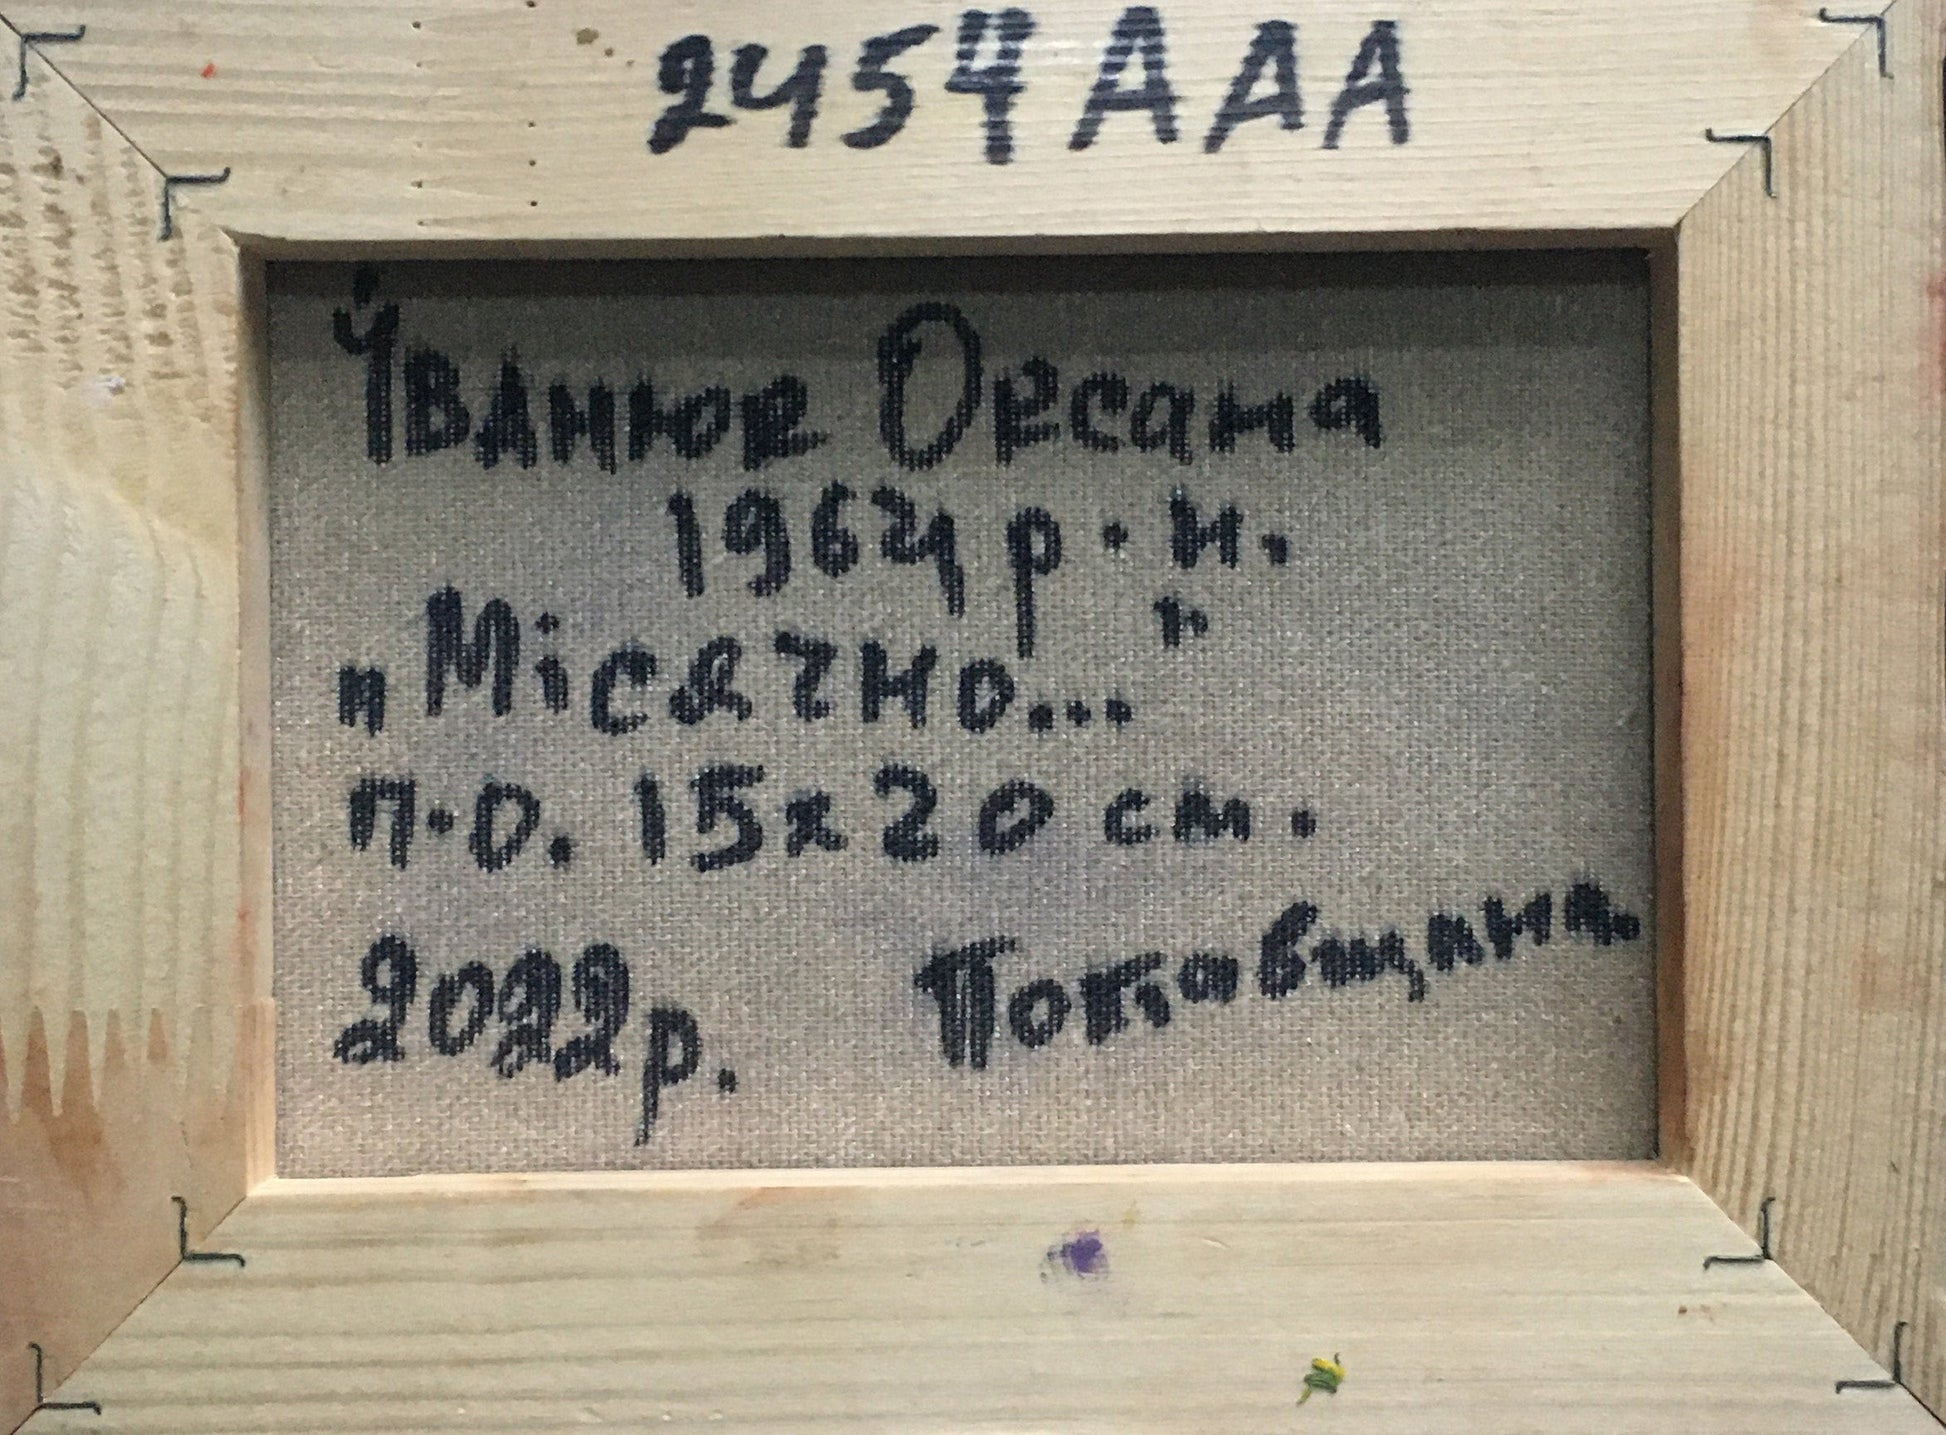 2454 AAA
Іванюк Оксана
1964 р. н.
„Місячно..."
п.о. 15х20 см.
2022 р. Полтавщина